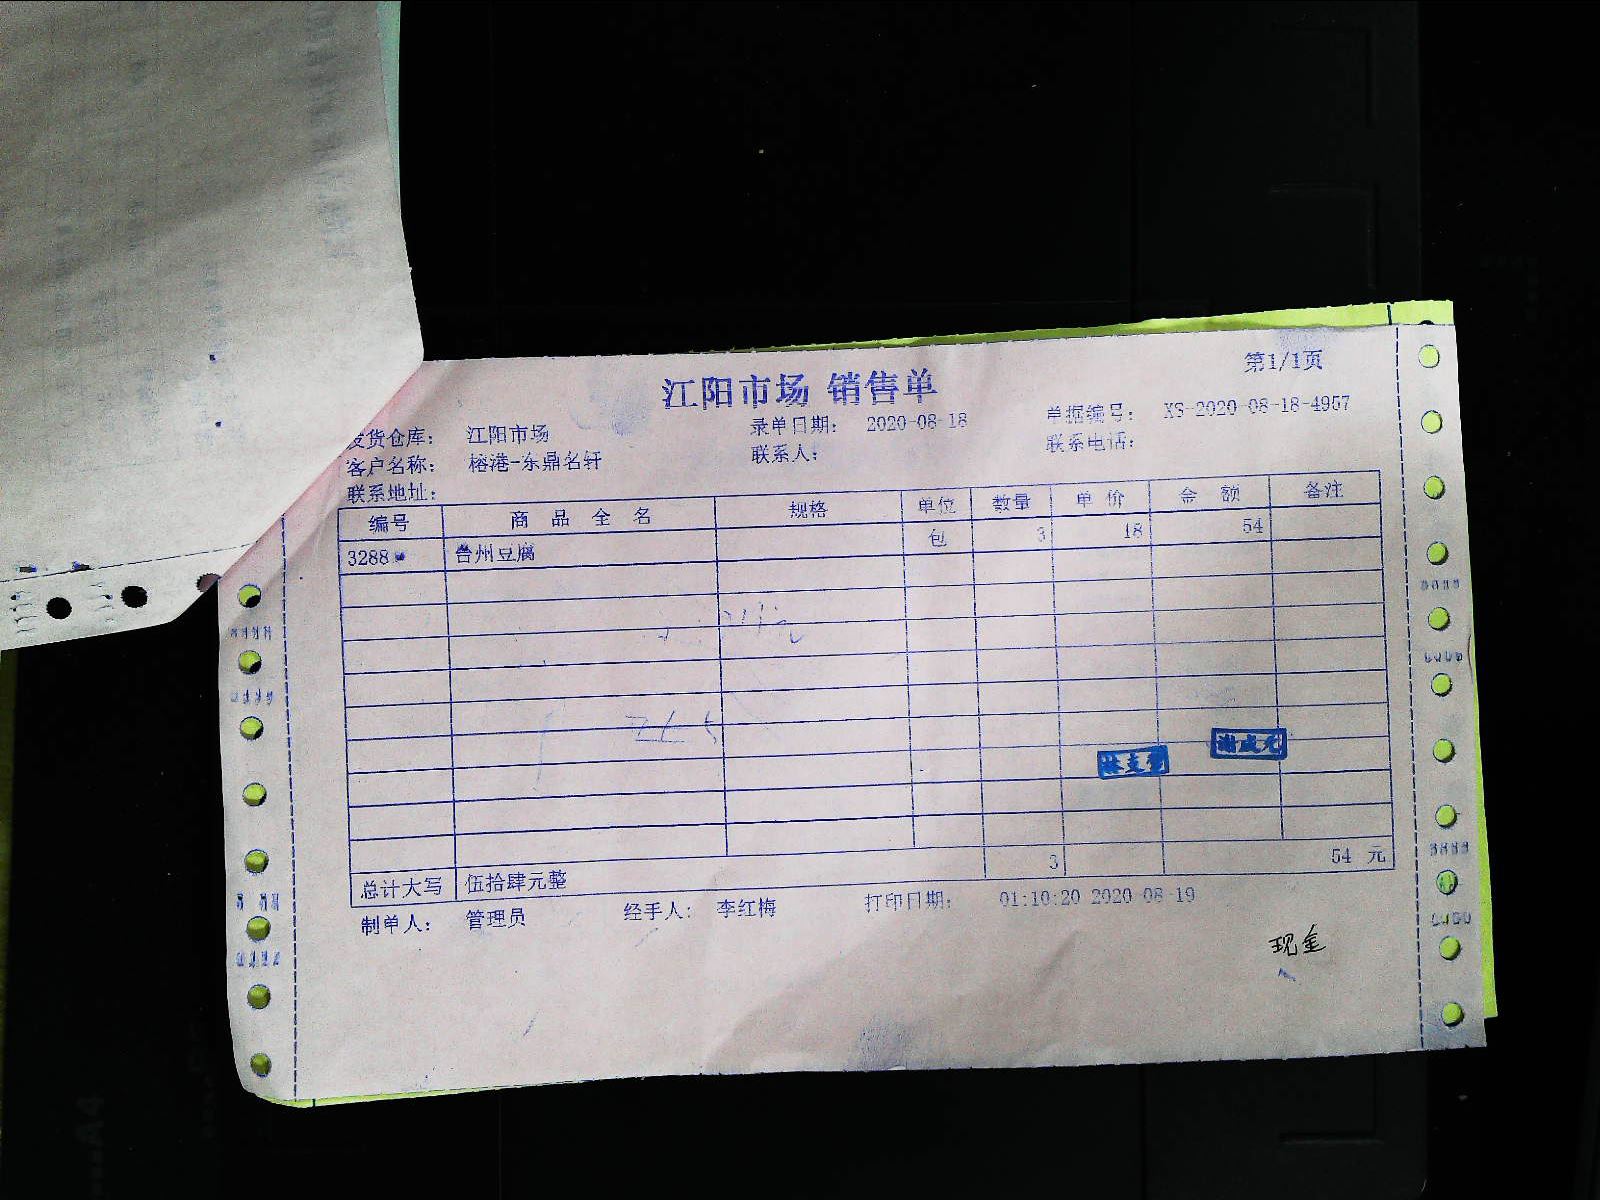 第1/1页
江阳市场 销售单
发货仓库: 江阳市场 录单日期: 2020-08-18 单据编号: XS-2020-08-18-4957
客户名称: 榕港-东鼎名轩 联系人: 联系电话:
联系地址:
编号 商 品 全 名 规格 单位 数量 单 价 金 额 备注
3288 台州豆腐 包 3 18 54
总计大写 伍拾肆元整 3 54 元
制单人: 管理员 经手人: 李红梅 打印日期: 01:10:20 2020-08-19
现金